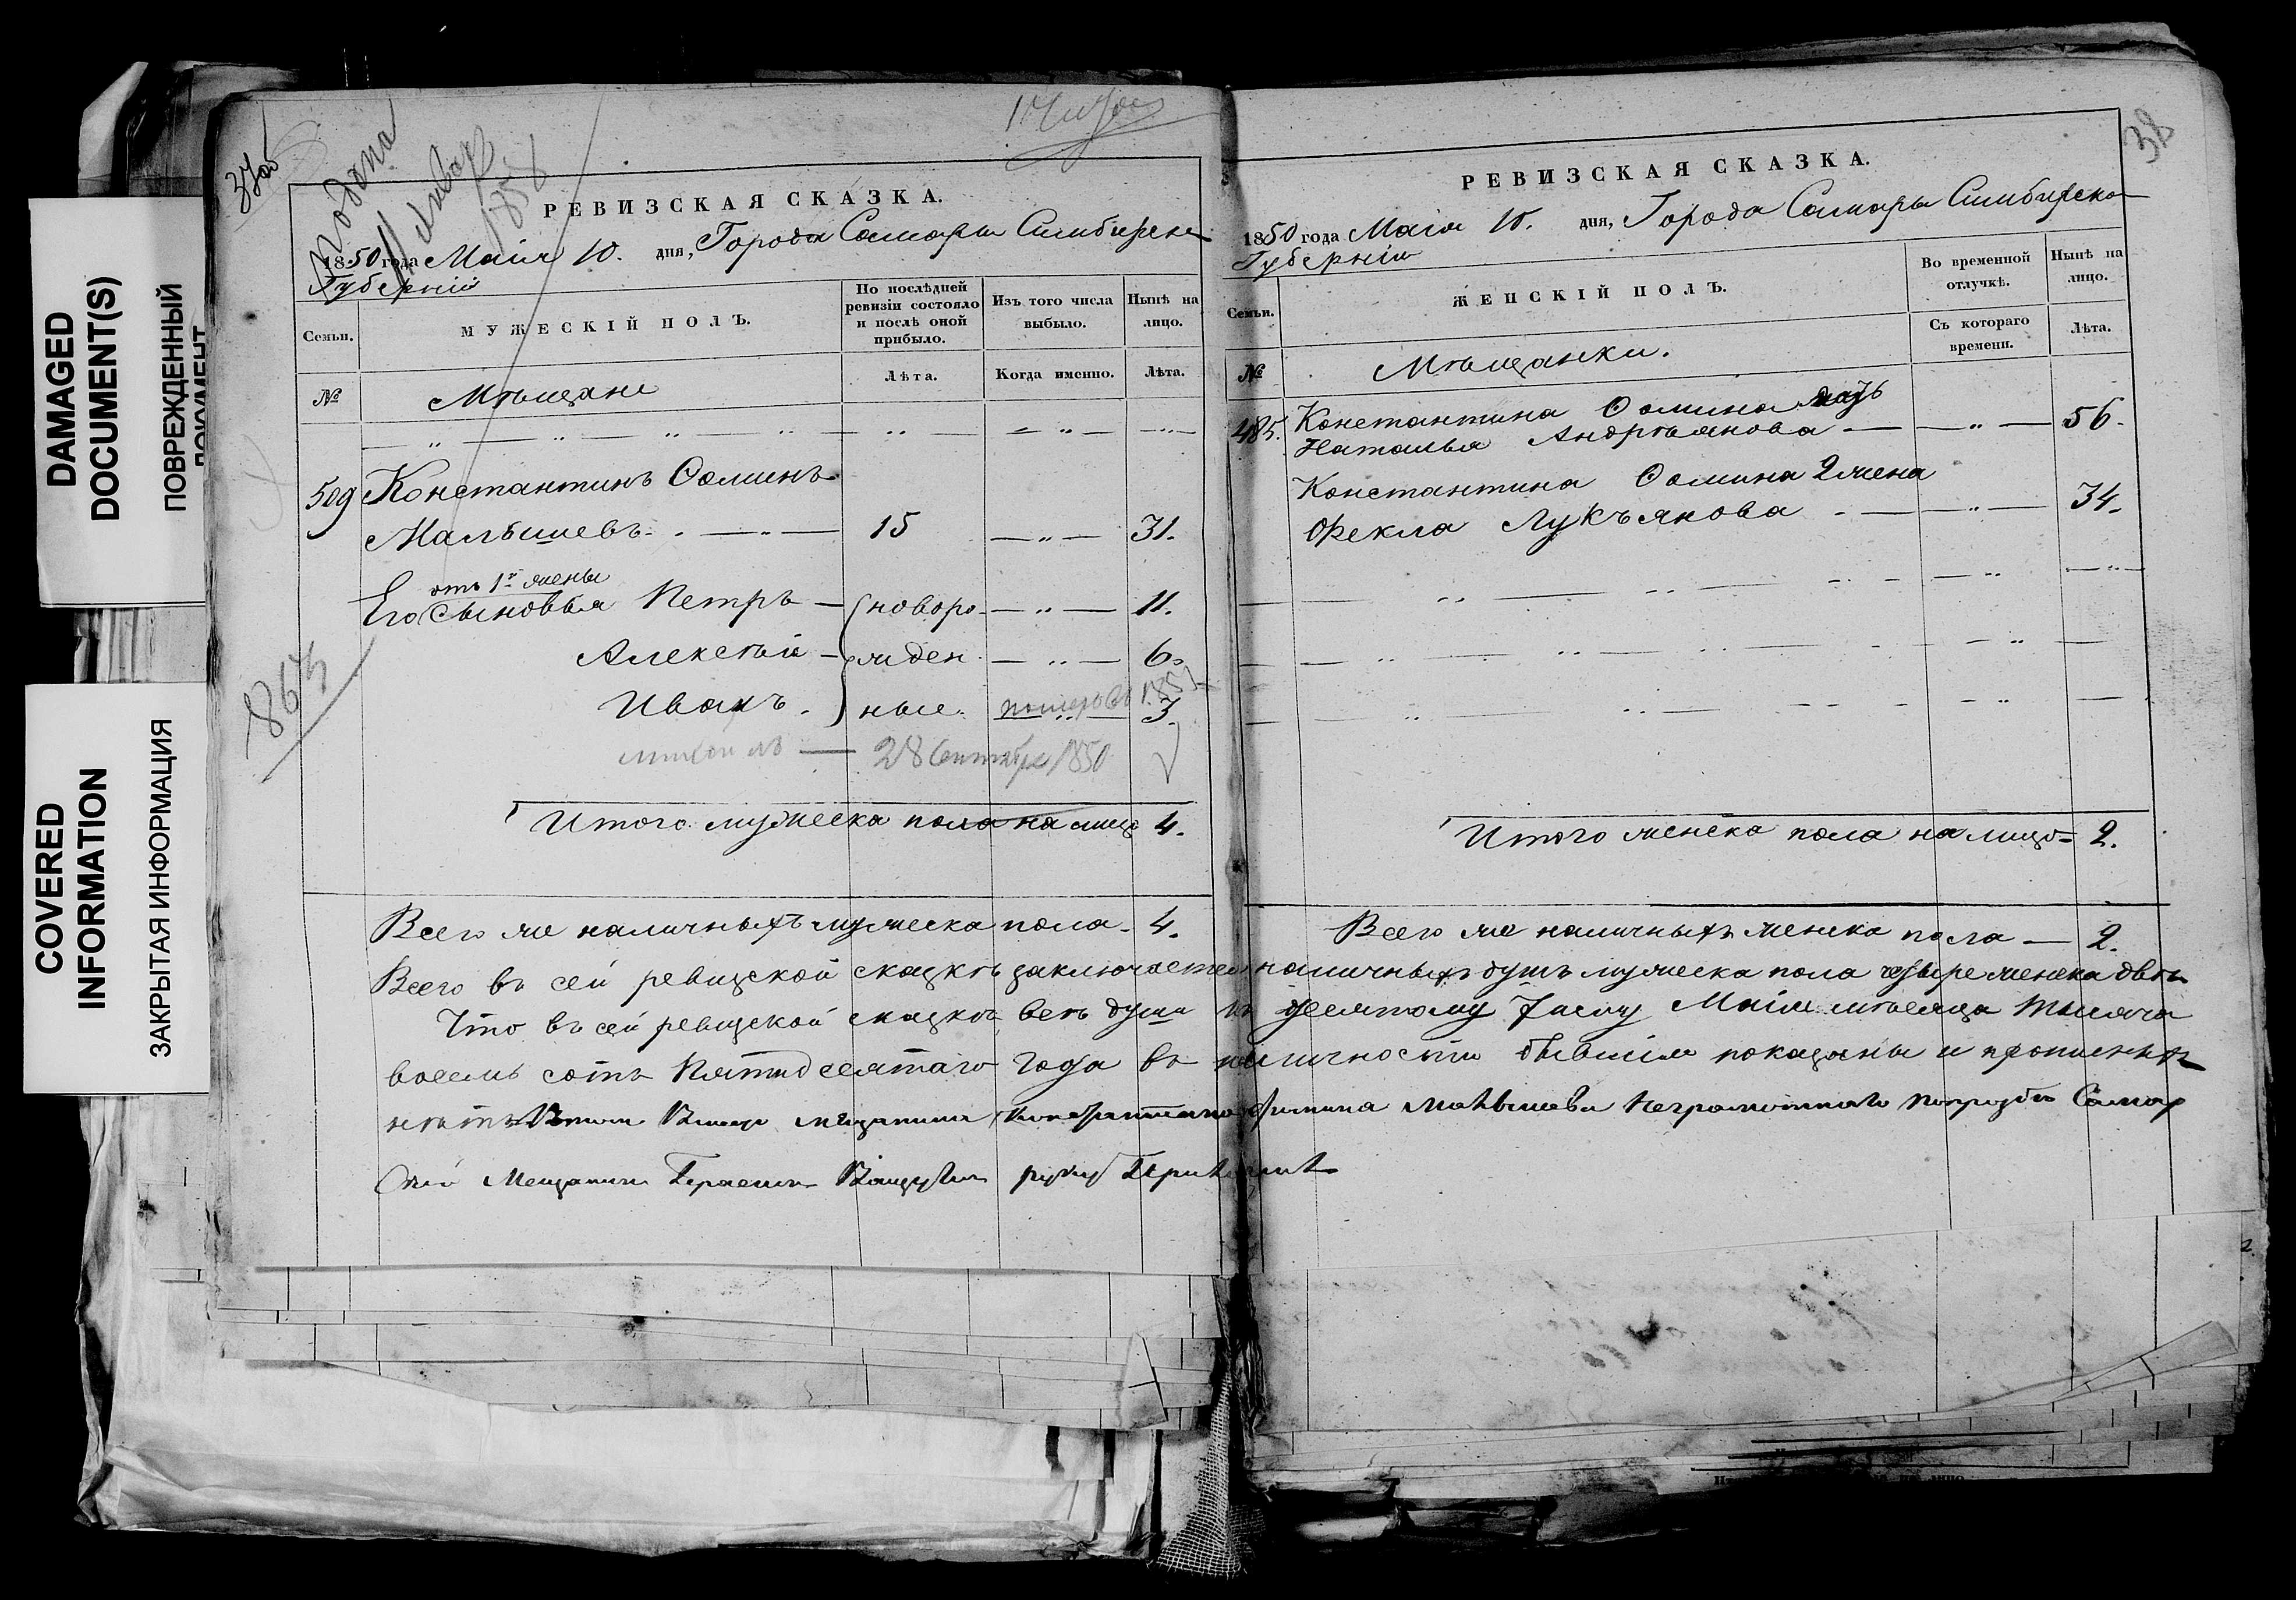 DAMAGED
DOCUMENT(S)
ПОВРЕЖДЕННЫЙ
ДОКУМЕНТ
COVERED
INFORMATION
ЗАКРЫТАЯ ИНФОРМАЦИЯ
37об
Подана
11 Января
1858
РЕВИЗСКАЯ СКАЗКА.
1850 года Маія 10. дня, Города Самары Симбирско
Губерніи
Семьи.
МУЖЕСКІЙ ПОЛЪ.
По послѣдней
ревизіи состояло
и послѣ оной
прибыло.
Изъ того числа
выбыло.
Нынѣ на
лицо.
№
Мѣщане
Лѣта.
Когда именно.
Лѣта.
509 Константинъ Ѳоминъ
Малышевъ 15 31.
отъ 1й жены
Его Сыновья Петръ новоро- 11.
Алексѣй жден 6.
Иванъ. ные. 3.
28 Сентября 1850
Итого мужеска пола на лицо 4.
Всего же наличныхъ мужеска пола 4.
38
РЕВИЗСКАЯ СКАЗКА.
1850 года Маія 10. дня, Города Самары Симбирско
Губерніи
Семьи.
ЖЕНСКІЙ ПОЛЪ.
Во временной
отлучкѣ.
Нынѣ на
лицо.
Съ котораго
времени.
Лѣта.
№
Мѣщанки.
485. Константина Ѳомина мать
Наталья Андрѣянова 56.
Константина Ѳомина 2 жена
Ѳекла Лукъянова 34.
Итого женска пола на лицо 2.
Всего же наличныхъ женска пола 2.
Всего въ сей ревизской сказкѣ заключается наличныхъ душъ мужеска пола четыре женска двѣ
Что въ сей ревизской сказкѣ всѣ души къ десятому числу Маія мѣсяца тысяча
восемь сотъ Пятидесятаго года въ наличности бывшіе показаны и прописныхъ
нѣтъ Въ томъ мещанина Константина Фимина Малышева Неграмотнаго Самар
ской Мещанин Герасим руку Приложилъ